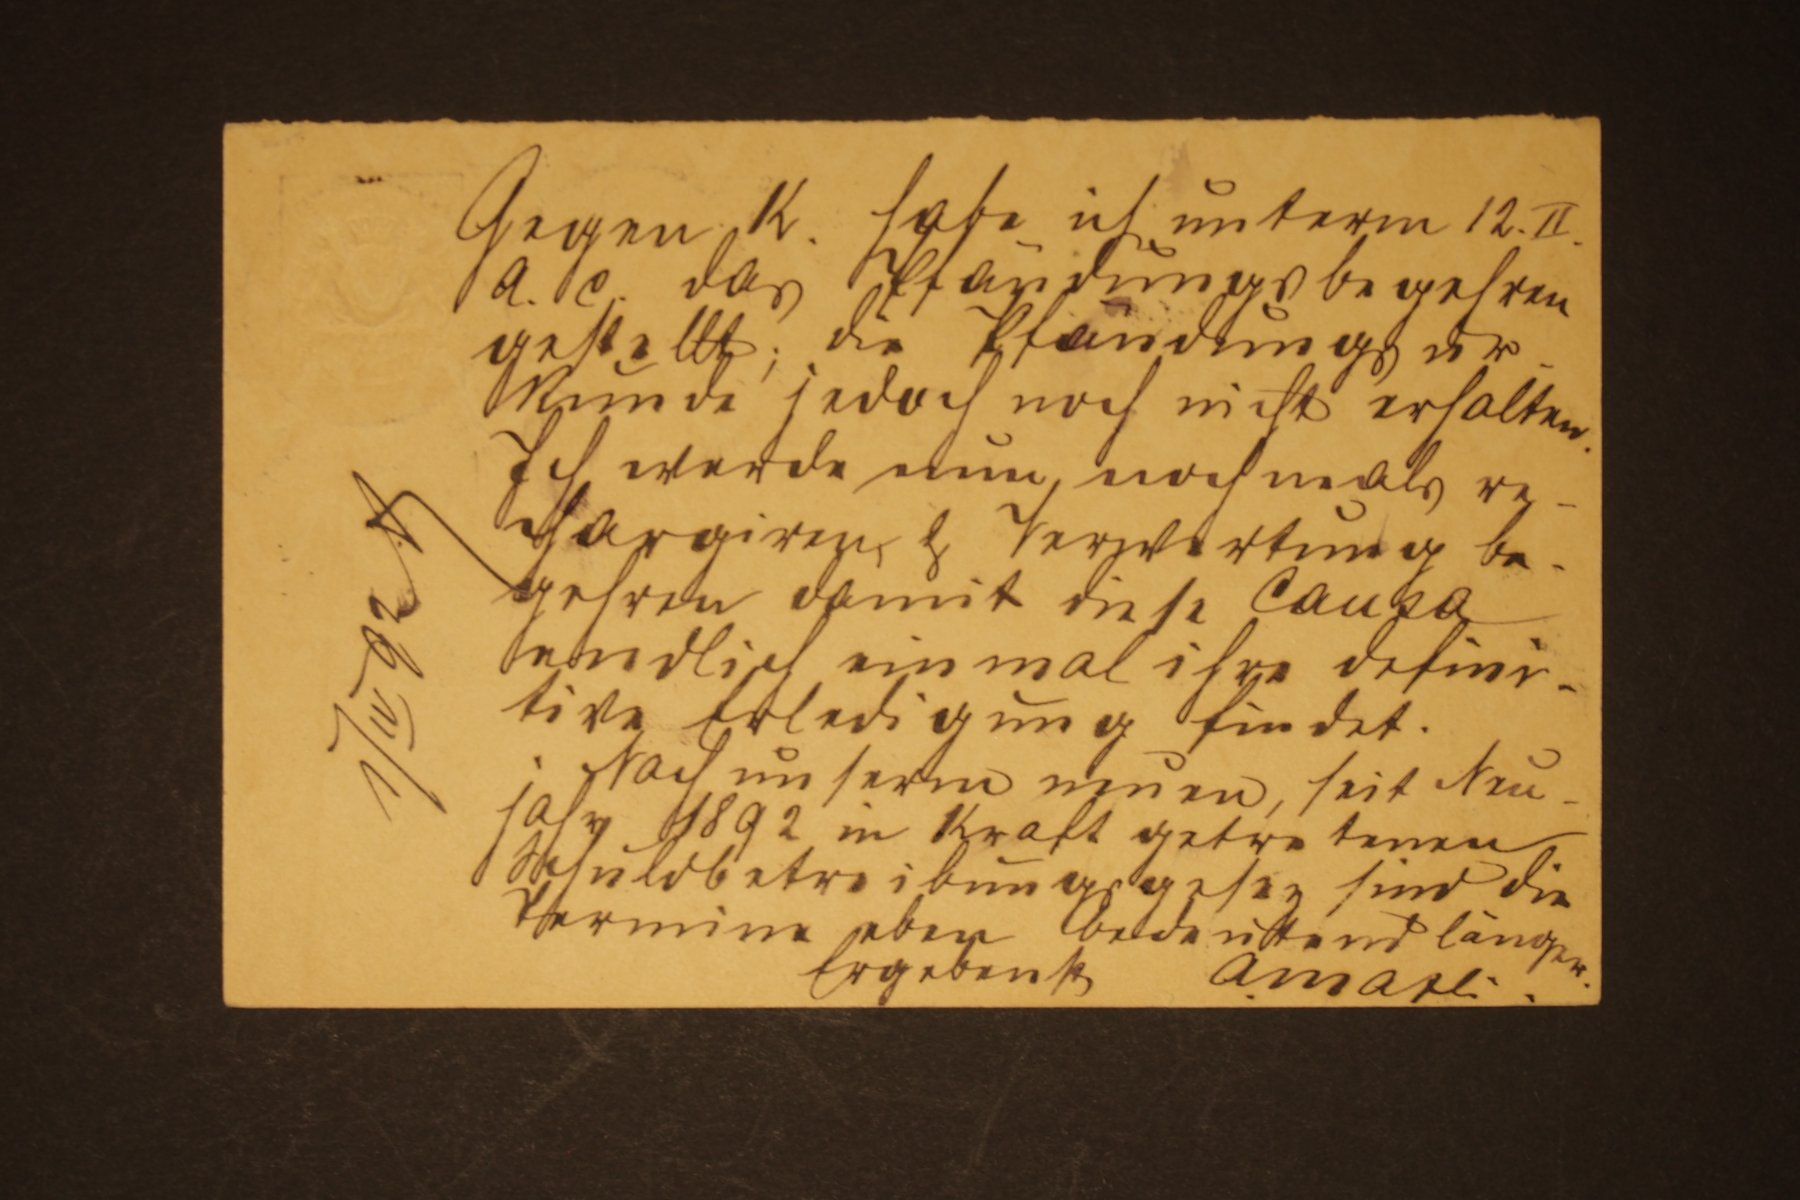 Gegen K. habe ich unterm 12. II.
a. c. das Pfändungsbegehren
gestellt; die Pfändungsur-
kunde jedoch noch nicht erhalten.
Ich werde nun nochmals re-
chargiren & Verwertung be-
gehren damit diese Causa
endlich einmal ihre defini-
tive Erledigung findet.
Nach unserm neuen, seit Neu-
jahr 1892 in Kraft getretenen
Schuldbetreibungsgesez sind die
Termine eben bedeutend länger.
Ergebenst
1/IV 92